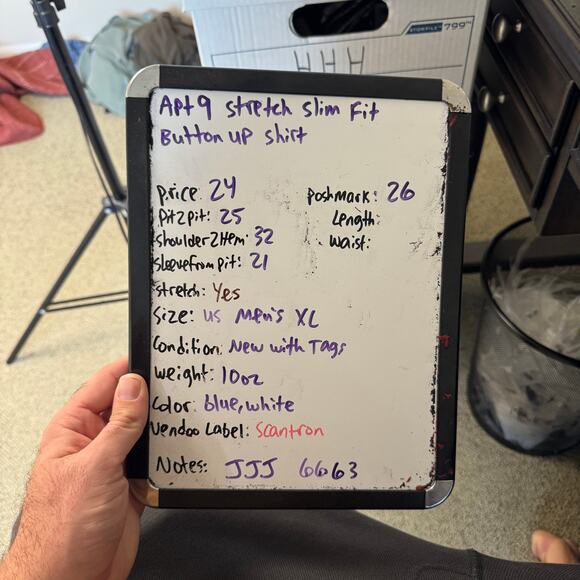 STOR/FILE™ 799™
HHH
Apt 9 stretch slim Fit
Button up shirt
price: 24
poshmark: 26
pit2pit: 25
Length:
shoulder2Hem: 32
waist:
sleevefrompit: 21
stretch: Yes
Size: US men's XL
Condition: New with Tags
weight: 10oz
Color: blue, white
Vendoo Label: Scantron
Notes: JJJ 6663